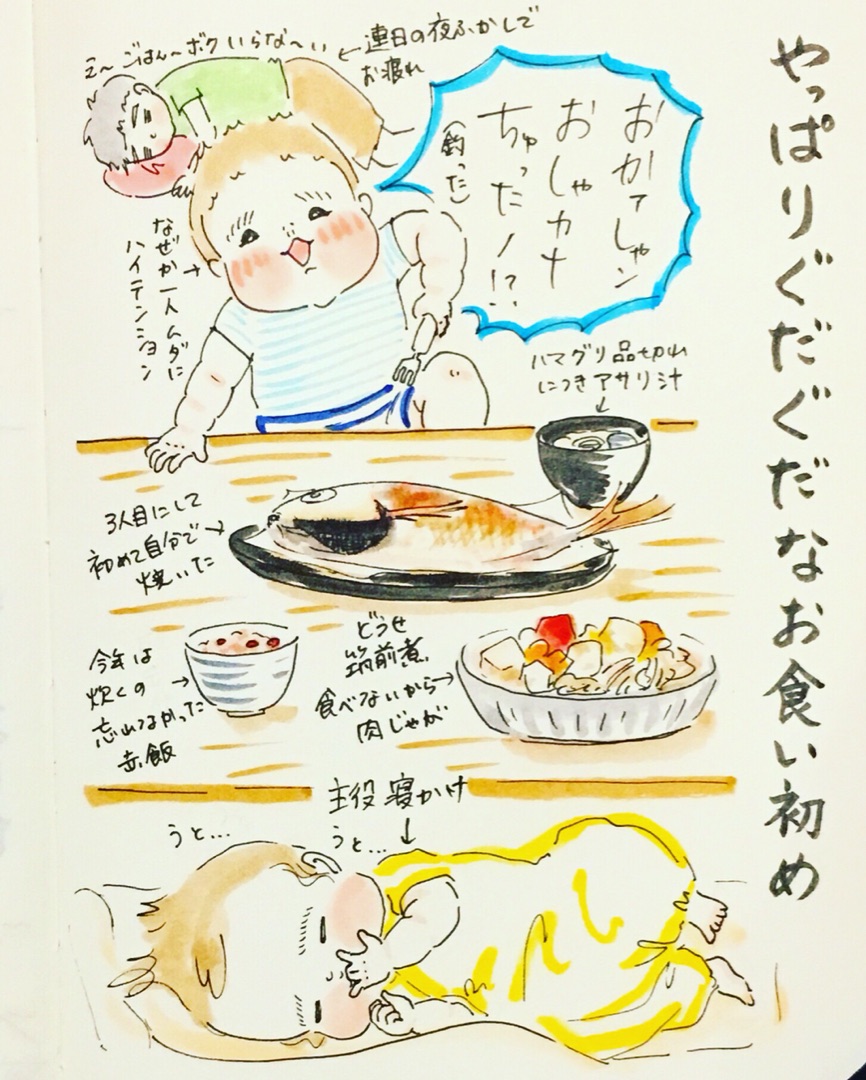 やっぱりぐだぐだなお食い初め
え〜ごはん〜ボクいらな〜い
←連日の夜ふかしで
お疲れ
おかァしゃん
おしゃカナ
ちゅったノ!?
(釣った)
なぜか一人ムダに
ハイテンション
ハマグリ品切れ
につきアサリ汁
3人目にして
初めて自分で
焼いた
今年は
炊くの
忘れてなかった
赤飯
どうせ
筑前煮
食べないから
肉じゃが
主役寝かけ
うと…
うと…